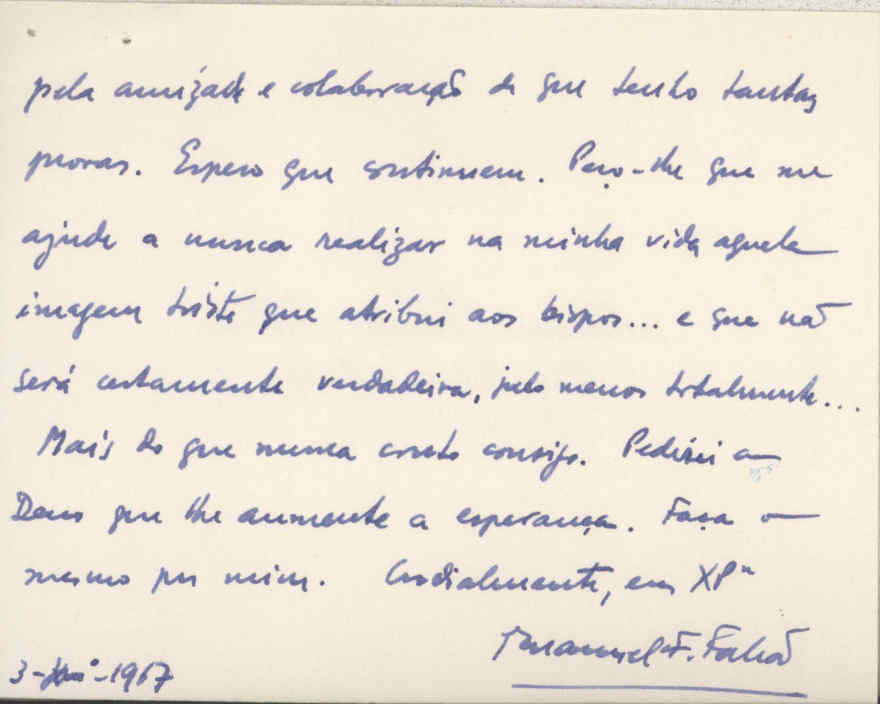 pela amizade e colaboração de que tenho tantas
provas. Espero que continuem. Peço-lhe que me
ajude a nunca realizar na minha vida aquela
imagem triste que atribui aos bispos... e que não
será certamente verdadeira, pelo menos totalmente...
Mais do que nunca conto consigo. Pedirei a
Deus que lhe aumente a esperança. Faça o
mesmo por mim. Cordialmente, em XPº
Manuel F. Falcão
3- -1967